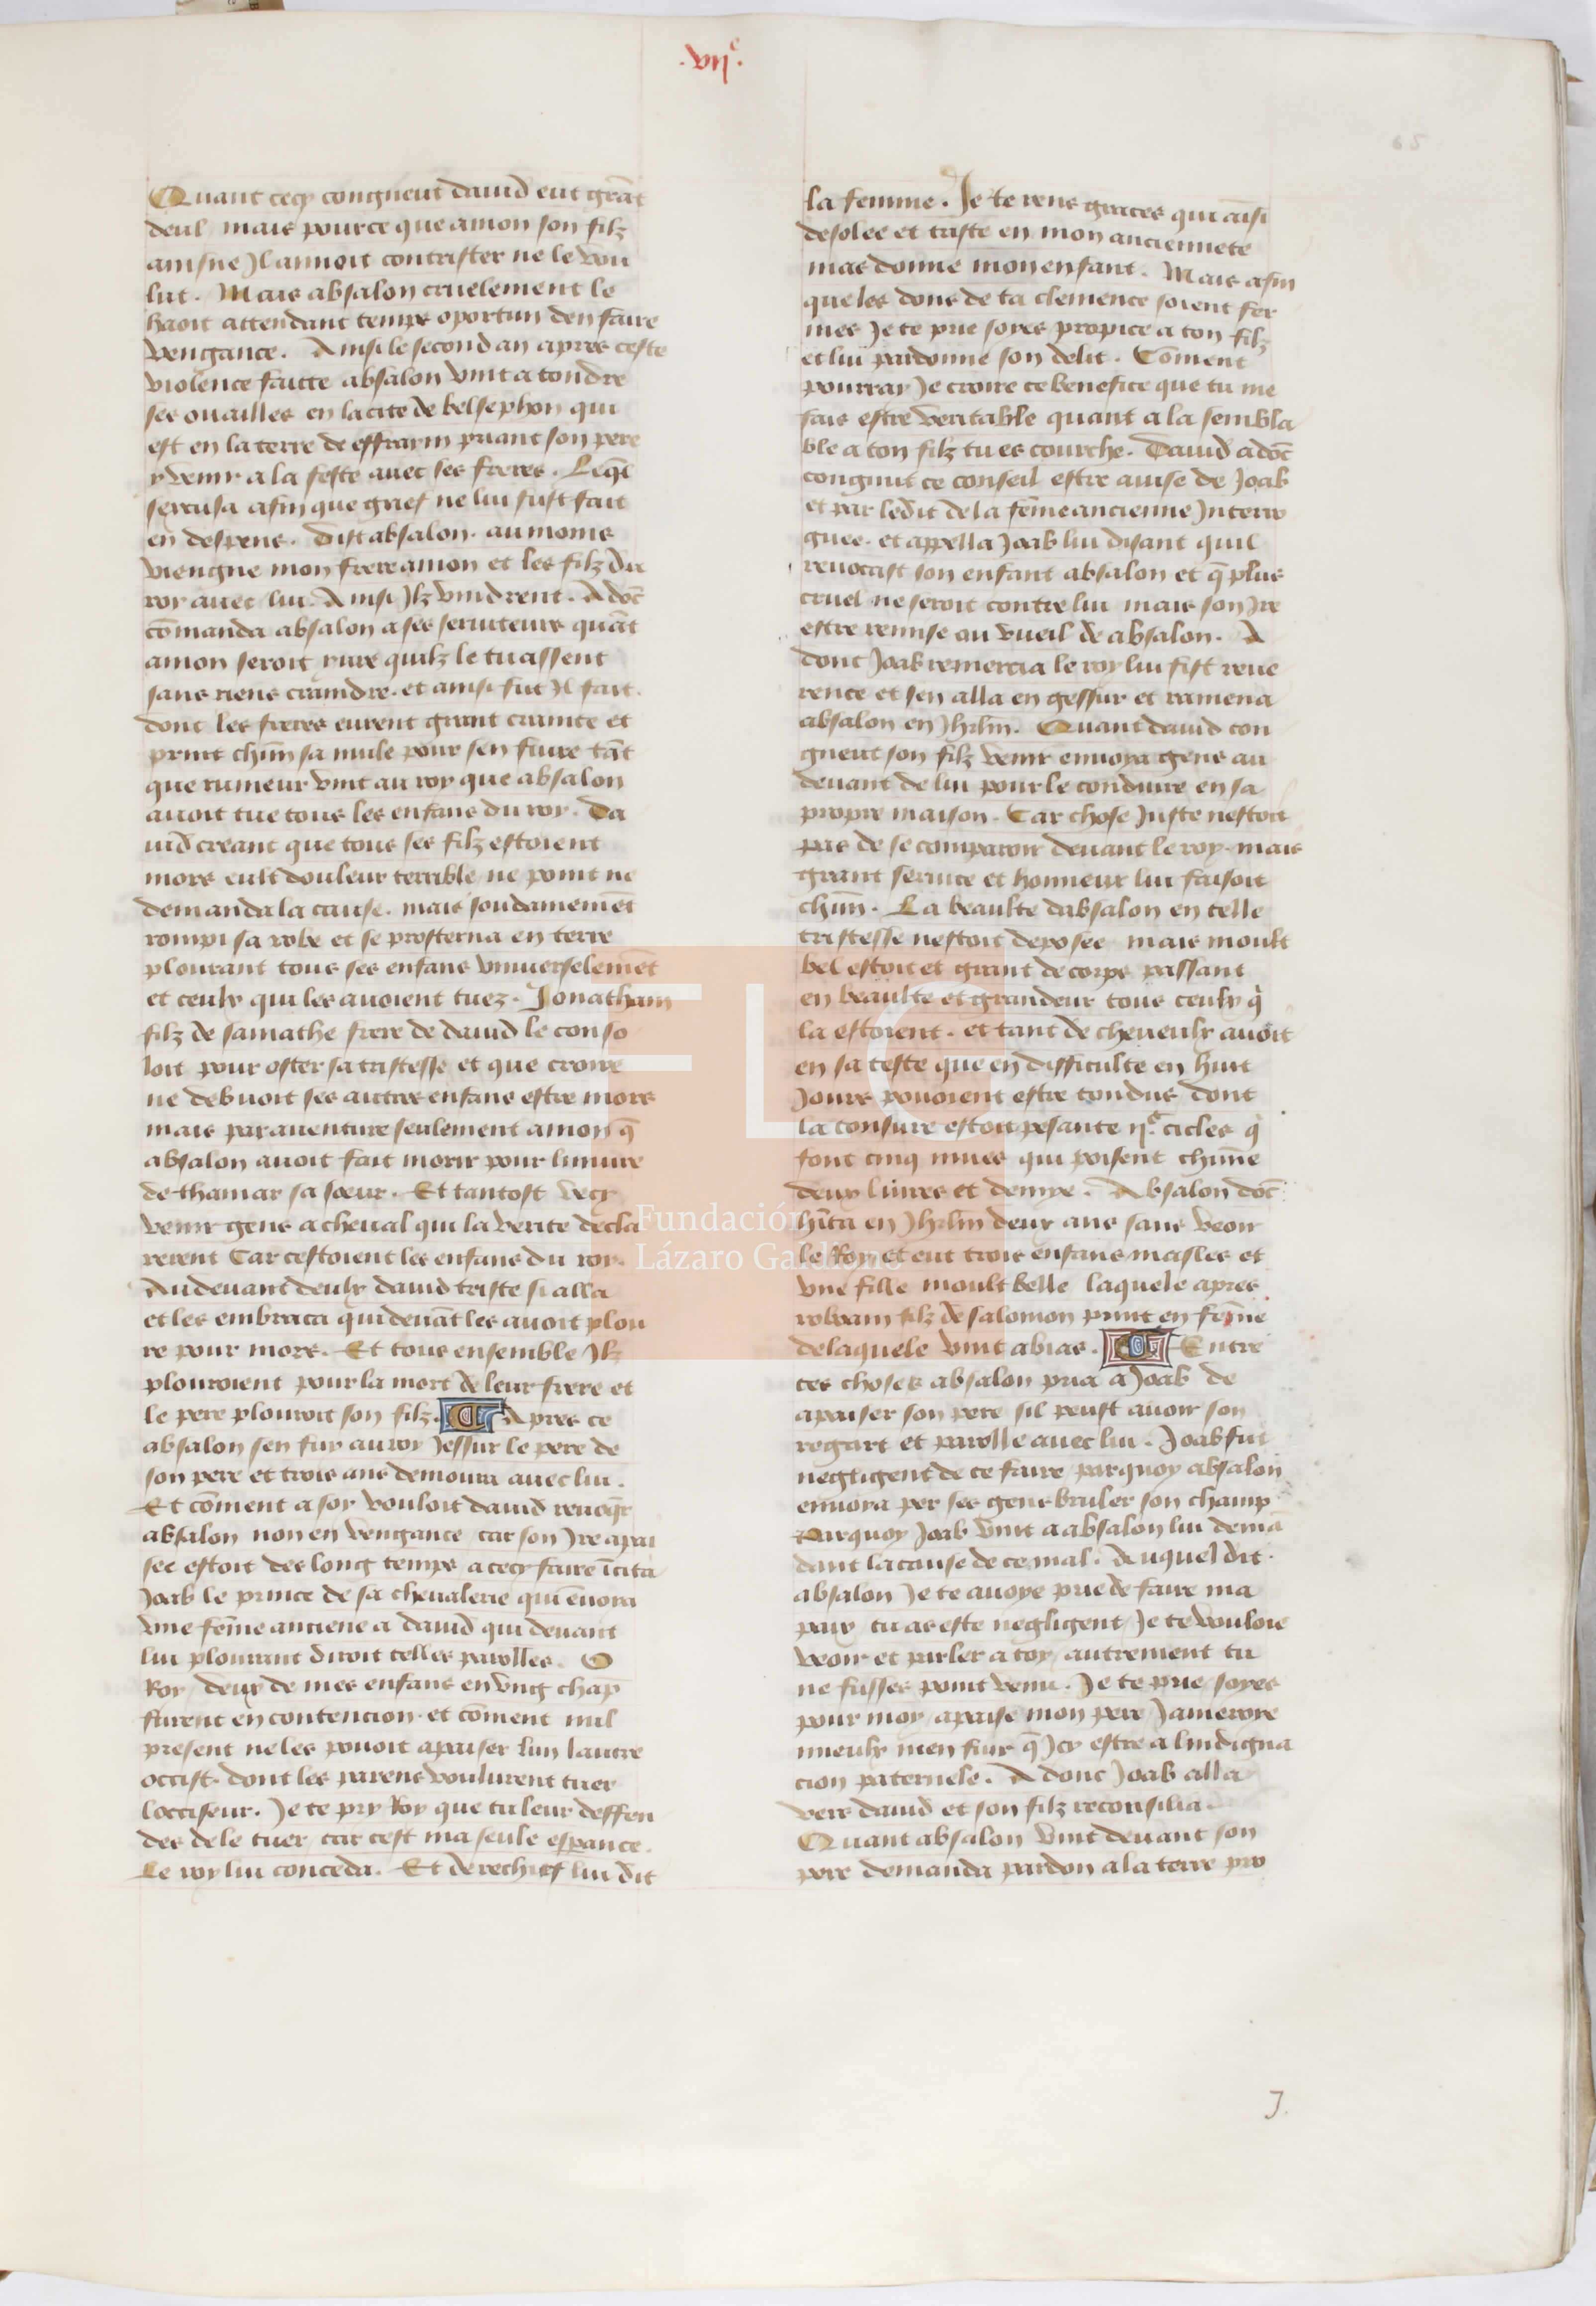 .vijᵉ.
65
Quant cecy congneut dauid eut grāt
deul mais pource que amon son filz
ainsne Jl aimoit contrister ne le vou
lut. Mais absalon cruelement le
haoit attendant temps oportun den faire
vengance. Ainsi le second an apres ceste
violence faicte absalon vint a tondre
ses ouailles en la cite de belsephon qui
est en la terre de effraym priant son pere
y venir a la feste auec ses freres. Leql̄
sexcusa afin que grief ne lui fust fait
en despens. Dist absalon. au moins
viengne mon frere amon et les filz du
roy auec lui. Ainsi Jlz vindrent. Adōc
cōmanda absalon a ses seruiteurs quāt
amon seroit yure quilz le tuassent
sans riens craindre. et ainsi fut Jl fait.
dont les freres eurent grant crainte et
print chūn sa mule pour sen fuire tāt
que rumeur vint au roy que absalon
auoit tue tous les enfans du roy. Da
uid creant que tous ses filz estoient
mors eult douleur terrible ne point ne
demanda la cause. mais soudainemēt
rompi sa robe et se prosterna en terre
plourant tous ses enfans vniuerselemēt
et ceulx qui les auoient tuez. Jonatham
filz de samathe frere de dauid le conso
loit pour oster sa tristesse et que croire
ne debuoit ses autres enfans estre mors
mais parauenture seulement amon q̄
absalon auoit fait morir pour liniure
de thamar sa soeur. Et tantost vecy
venir gens a cheual qui la verite decla
rerent Car cestoient les enfans du roy.
Audeuant deulx dauid triste si alla
et les embraca qui deuāt les auoit plou
re pour mors. Et tous ensemble Jlz
plouroient pour la mort de leur frere et
le pere plouroit son filz. Apres ce
absalon sen fuy au roy Jessur le pere de
son pere et trois ans demoura auec lui.
Et cōment a soy vouloit dauid reuoq̄r
absalon non en vengance car son Jre apai
see estoit des long temps a cecy faire īcita
Joab le prince de sa cheualerie qui ēuoia
vne fēme anciene a dauid qui deuant
lui plourant diroit telles parolles. O
Roy deux de mes enfans en vng chāp
furent en contencion. et cōment nul
present ne les pouoit apaiser lun lautre
occist. dont les parens voulurent tuer
locciseur. Je te pry Roy que tu leur deffen
des de le tuer car cest ma seule esperance.
Le roy lui conceda. Et derechief lui dit
la femme. Je te rens graces qui aīsi
desolee et triste en mon anciennete
mas donne mon enfant. Mais afin
que les dons de ta clemence soient fer
mes Je te prie soyes propice a ton filz
et lui pardonne son delit. Cōment
pourray Je croire ce benefice que tu me
fais estre veritable quant a la sembla
ble a ton filz tu es courche. Dauid adōc
congnut ce conseil estre auise de Joab
et par ledit de la fēme ancienne Jnterro
guee. et appella Joab lui disant quil
reuocast son enfant absalon et q̄ plus
cruel ne seroit contre lui mais son Jre
estre remise au vueil de absalon. A
donc Joab remercia le roy lui fist reue
rence et sen alla en gessur et ramena
absalon en Jhrlm̄. Quant dauid con
gneut son filz venir enuoya gens au
deuant de lui pour le conduire en sa
propre maison. Car chose Juste nestoit
pas de se comparoir deuant le roy. mais
grant seruice et honneur lui faisoit
chūn. La beaulte dabsalon en telle
tristesse nestoit deposee mais moult
bel estoit et grant de corps passant
en beaulte et grandeur tous ceulx q̄
la estoient. et tant de cheueulx auoit
en sa teste que en difficulte en huit
Jours pouoient estre tondus dont
la tonsure estoit pesante ijᶜ cicles q̄
font cinq mnes qui poisent chūne
deux liures et demye. Absalon dōc
hīta en Jhrlm̄ deux ans sans veoir
le Roy et eut trois enfans masles et
vne fille moult belle laquele apres
roboam filz de salomon print en fēme
de laquele vint abias. Entre
ces choses absalon pria a Joab de
apaiser son pere sil peust auoir son
regart et parolle auec lui. Joab fut
negligent de ce faire parquoy absalon
enuoia per ses gens bruler son champ
Parquoy Joab vint a absalon lui demā
dant la cause de ce mal. Auquel dit.
absalon Je te auoye prie de faire ma
paix tu as este negligent Je te vouloie
veoir et parler a toy autrement tu
ne fusses point venu. Je te prie soyes
pour moy apaise mon pere Jameroye
mieulx men fuir q̄ Jcy estre a lindigna
cion paternele. Adonc Joab alla
vers dauid et son filz reconsilia.
Quant absalon vint deuant son
pere demanda pardon a la terre pro
J.
FLG
Fundación
Lázaro Galdiano